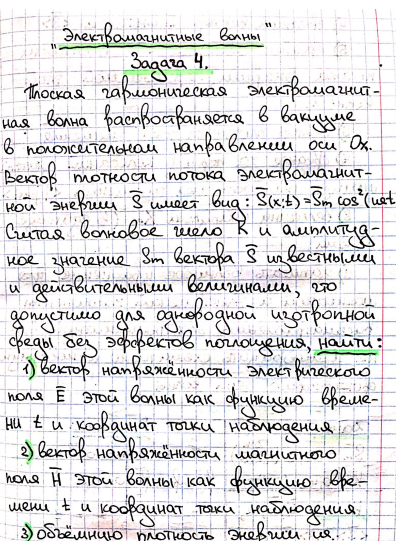 "Электромагнитные волны"
Задача 4.
Плоская гармоническая электромагнит-
ная волна распространяется в вакууме
в положительном направлении оси Ox.
Вектор плотности потока электромагнит-
ной энергии S̄ имеет вид: S̄(x;t)=S̄m cos²(ωt
Считая волновое число k и амплитуд-
ное значение Sm вектора S̄ известными
и действительными величинами, что
допустимо для однородной изотропной
среды без эффектов поглощения, найти:
1) вектор напряжённости электрического
поля Ē этой волны как функцию време-
ни t и координат точки наблюдения
2) вектор напряжённости магнитного
поля H̄ этой волны как функцию вре-
мени t и координат точки наблюдения
3) объёмную плотность энергии